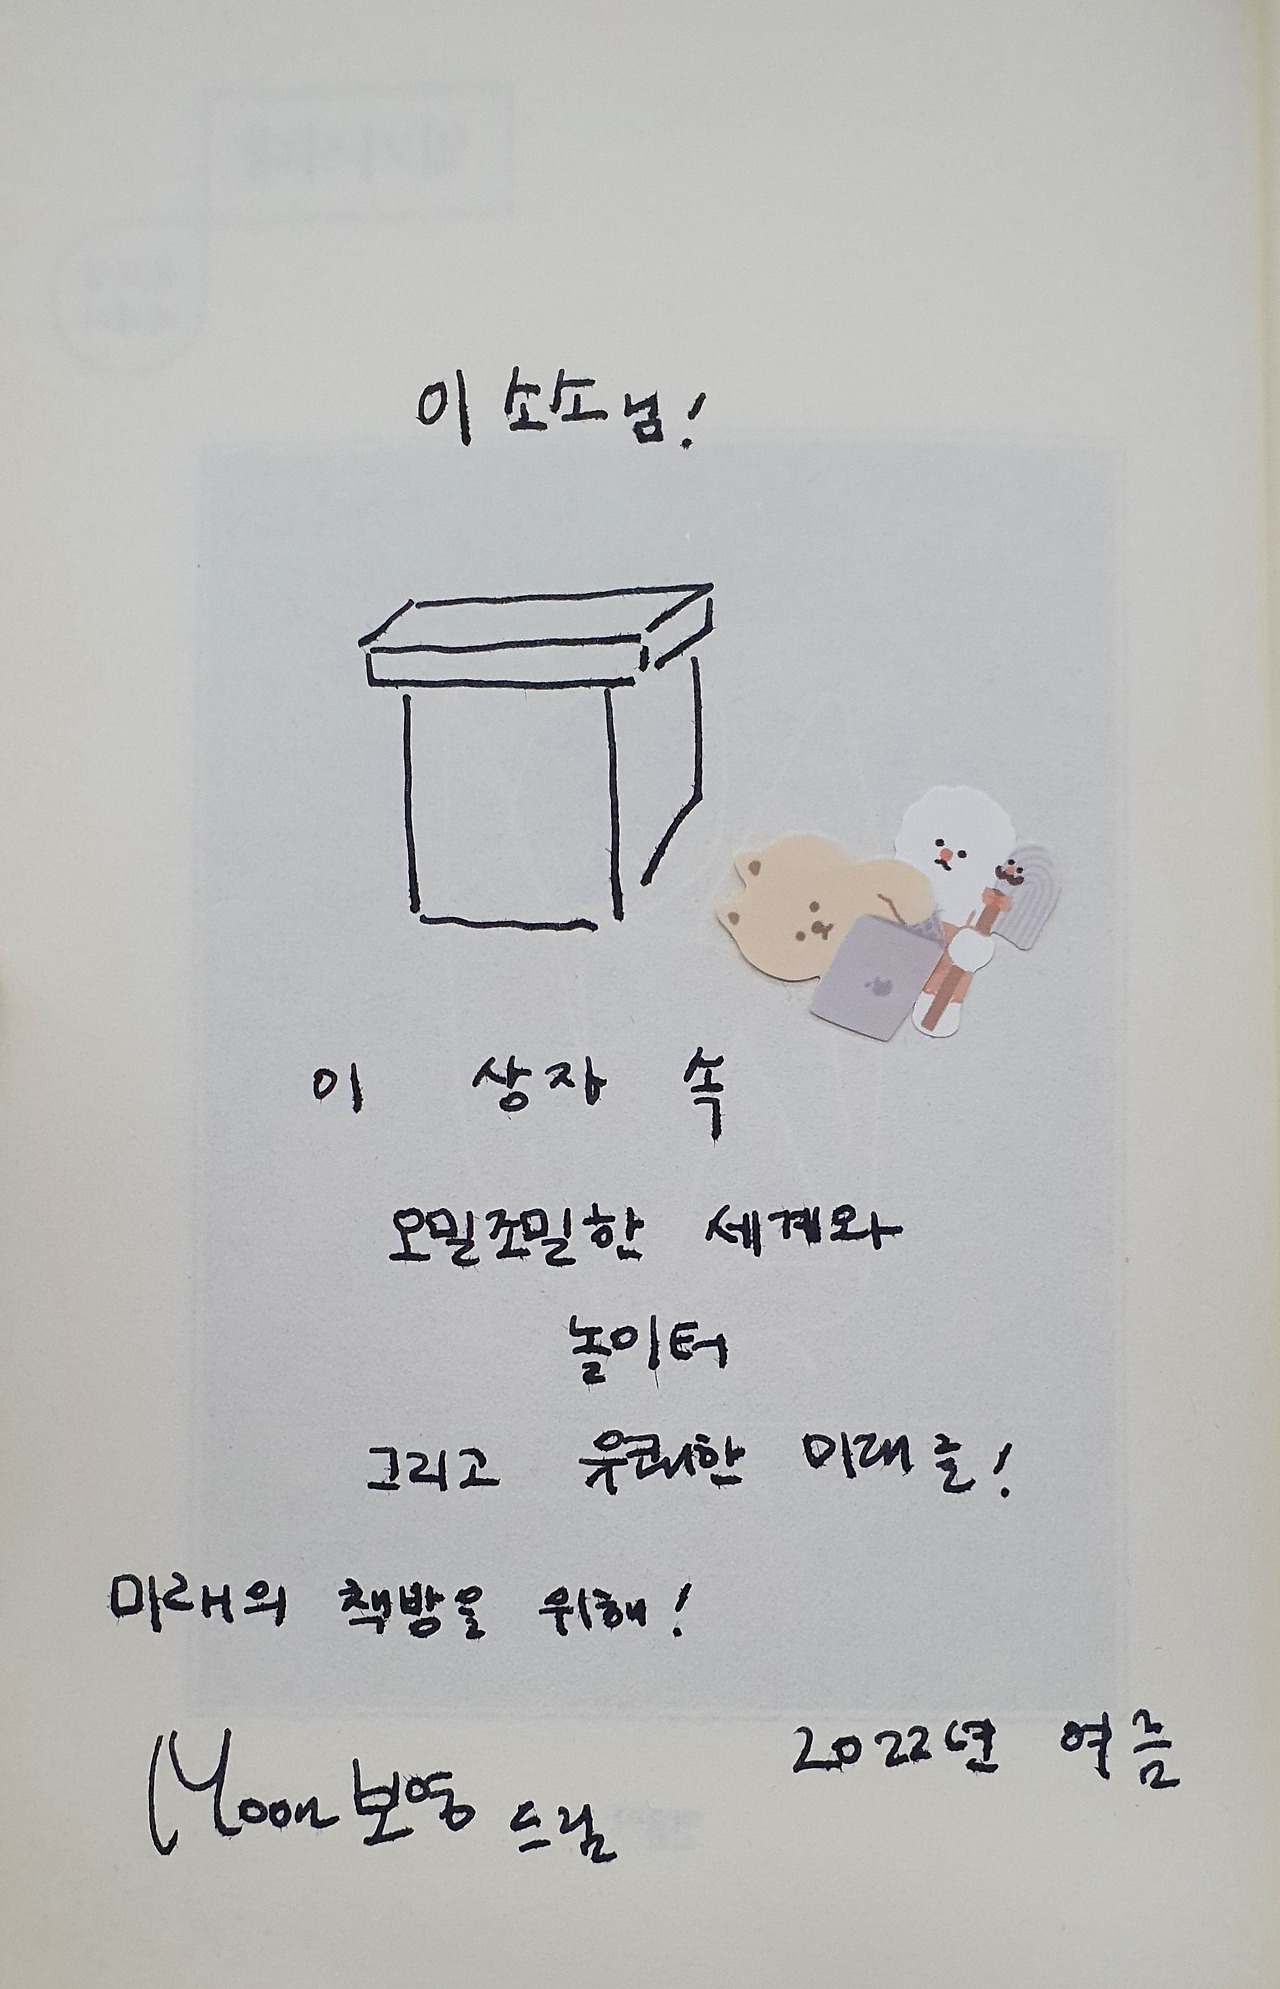 이소소님!
이 상자 속
오밀조밀한 세계와
놀이터
그리고 유쾌한 미래를!
미래의 책방을 위해!
2022년 여름
Moon보영 드림